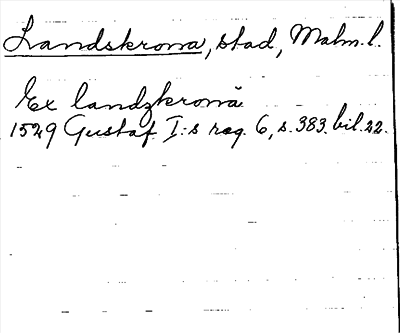 Landskrona, stad, Malm. l.
Ex landzkronā
1529 Gustaf I:s reg. 6, s. 383. bil. 22.